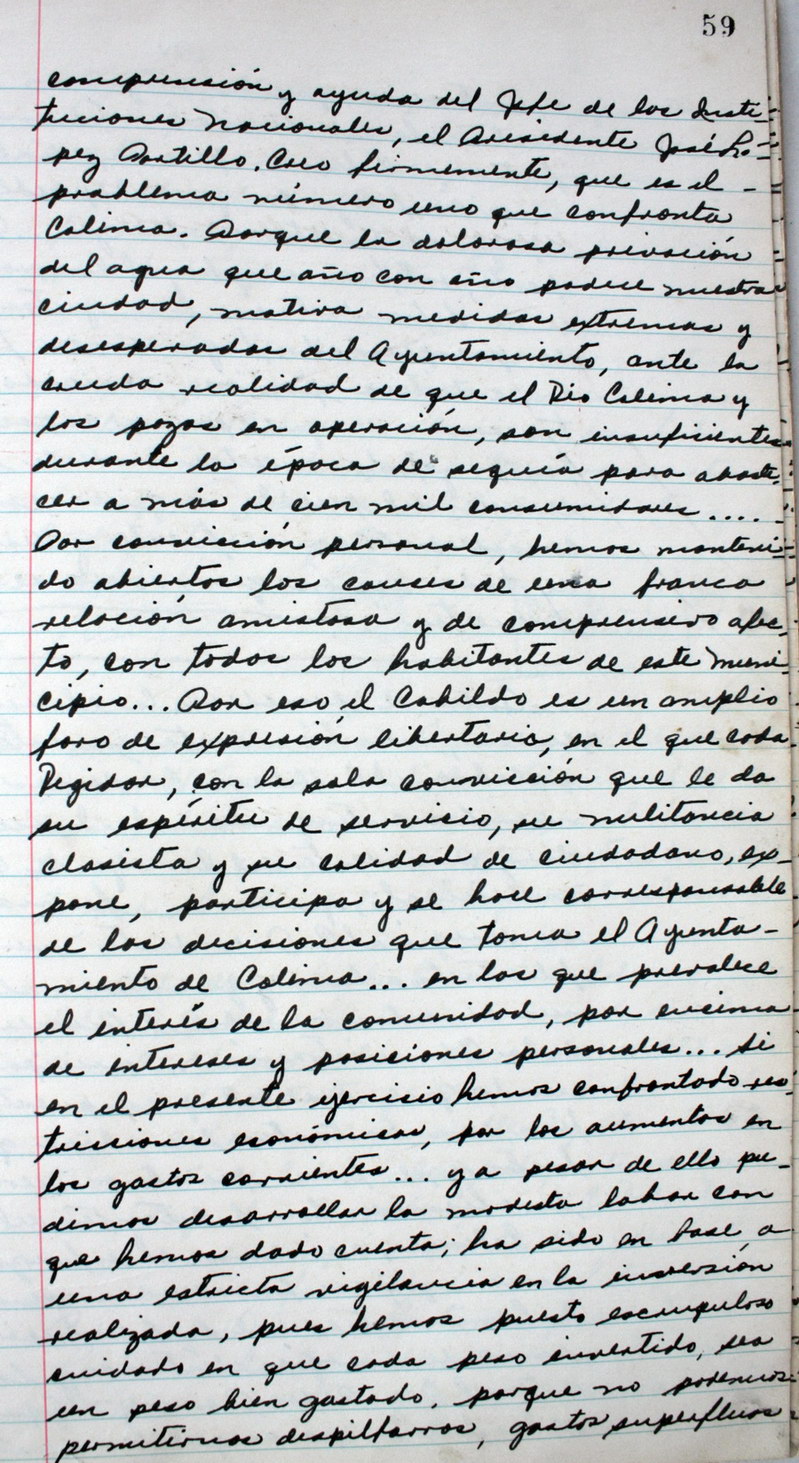 59
comprensión y ayuda del Jefe de las Insti-
tuciones Nacionales, el Presidente José Ló-
pez Portillo. Creo firmemente, que es el -
problema número uno que confronta
Colima. Porque la dolorosa privación
del agua que año con año padece nuestra
ciudad, motiva medidas extremas y
desesperadas del Ayuntamiento, ante la
cruda realidad de que el Río Colima y
los pozos en operación, son insuficientes
durante la época de sequía para abaste-
cer a más de cien mil consumidores....-
Por convicción personal, hemos manteni-
do abiertos los causes de una franca
relación amistosa y de comprensivo afec-
to, con todos los habitantes de este Muni-
cipio... Por eso, el Cabildo es un amplio
foro de expresión libertaria, en el que cada
Regidor, con la sola convicción que le da
su espíritu de servicio, su militancia
clasista y su calidad de ciudadano, ex-
pone, participa y se hace corresponsable
de las decisiones que toma el Ayunta-
miento de Colima... en las que prevalece
el interés de la comunidad, por encima
de intereses y posiciones personales... Si
en el presente ejercisio hemos confrontado res-
tricciones económicas, por los aumentos en
los gastos corrientes... y a pesar de ello pu-
dimos desarrollar la modesta labor con
que hemos dado cuenta; ha sido en base a
una estricta vigilancia en la inversión
realizada, pues hemos puesto escrupuloso
cuidado en que cada peso invertido, sea
un peso bien gastado, porque no podemos
permitirnos despilfarros, gastos superfluos